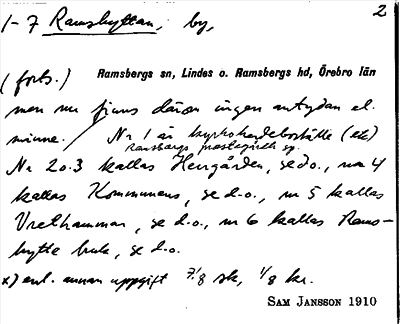 1-7 Ramshyttan, by, 2
(forts.) Ramsbergs sn, Lindes o. Ramsbergs hd, Örebro län
men nu finns därom ingen antydan el.
minne. / Nr 1 är kyrkoherdeboställe (etc)
Ramsbergs prästagård, sg.
Nr 2 o. 3 kallas Herrgården, se d.o., nr 4
kallas Kommunens, se d.o., nr 5 kallas
Vrethammar, se d.o., nr 6 kallas Rams-
hytte bruk, se d.o.
x) enl. annan uppgift 7/8 sk, 1/8 kr.
SAM JANSSON 1910